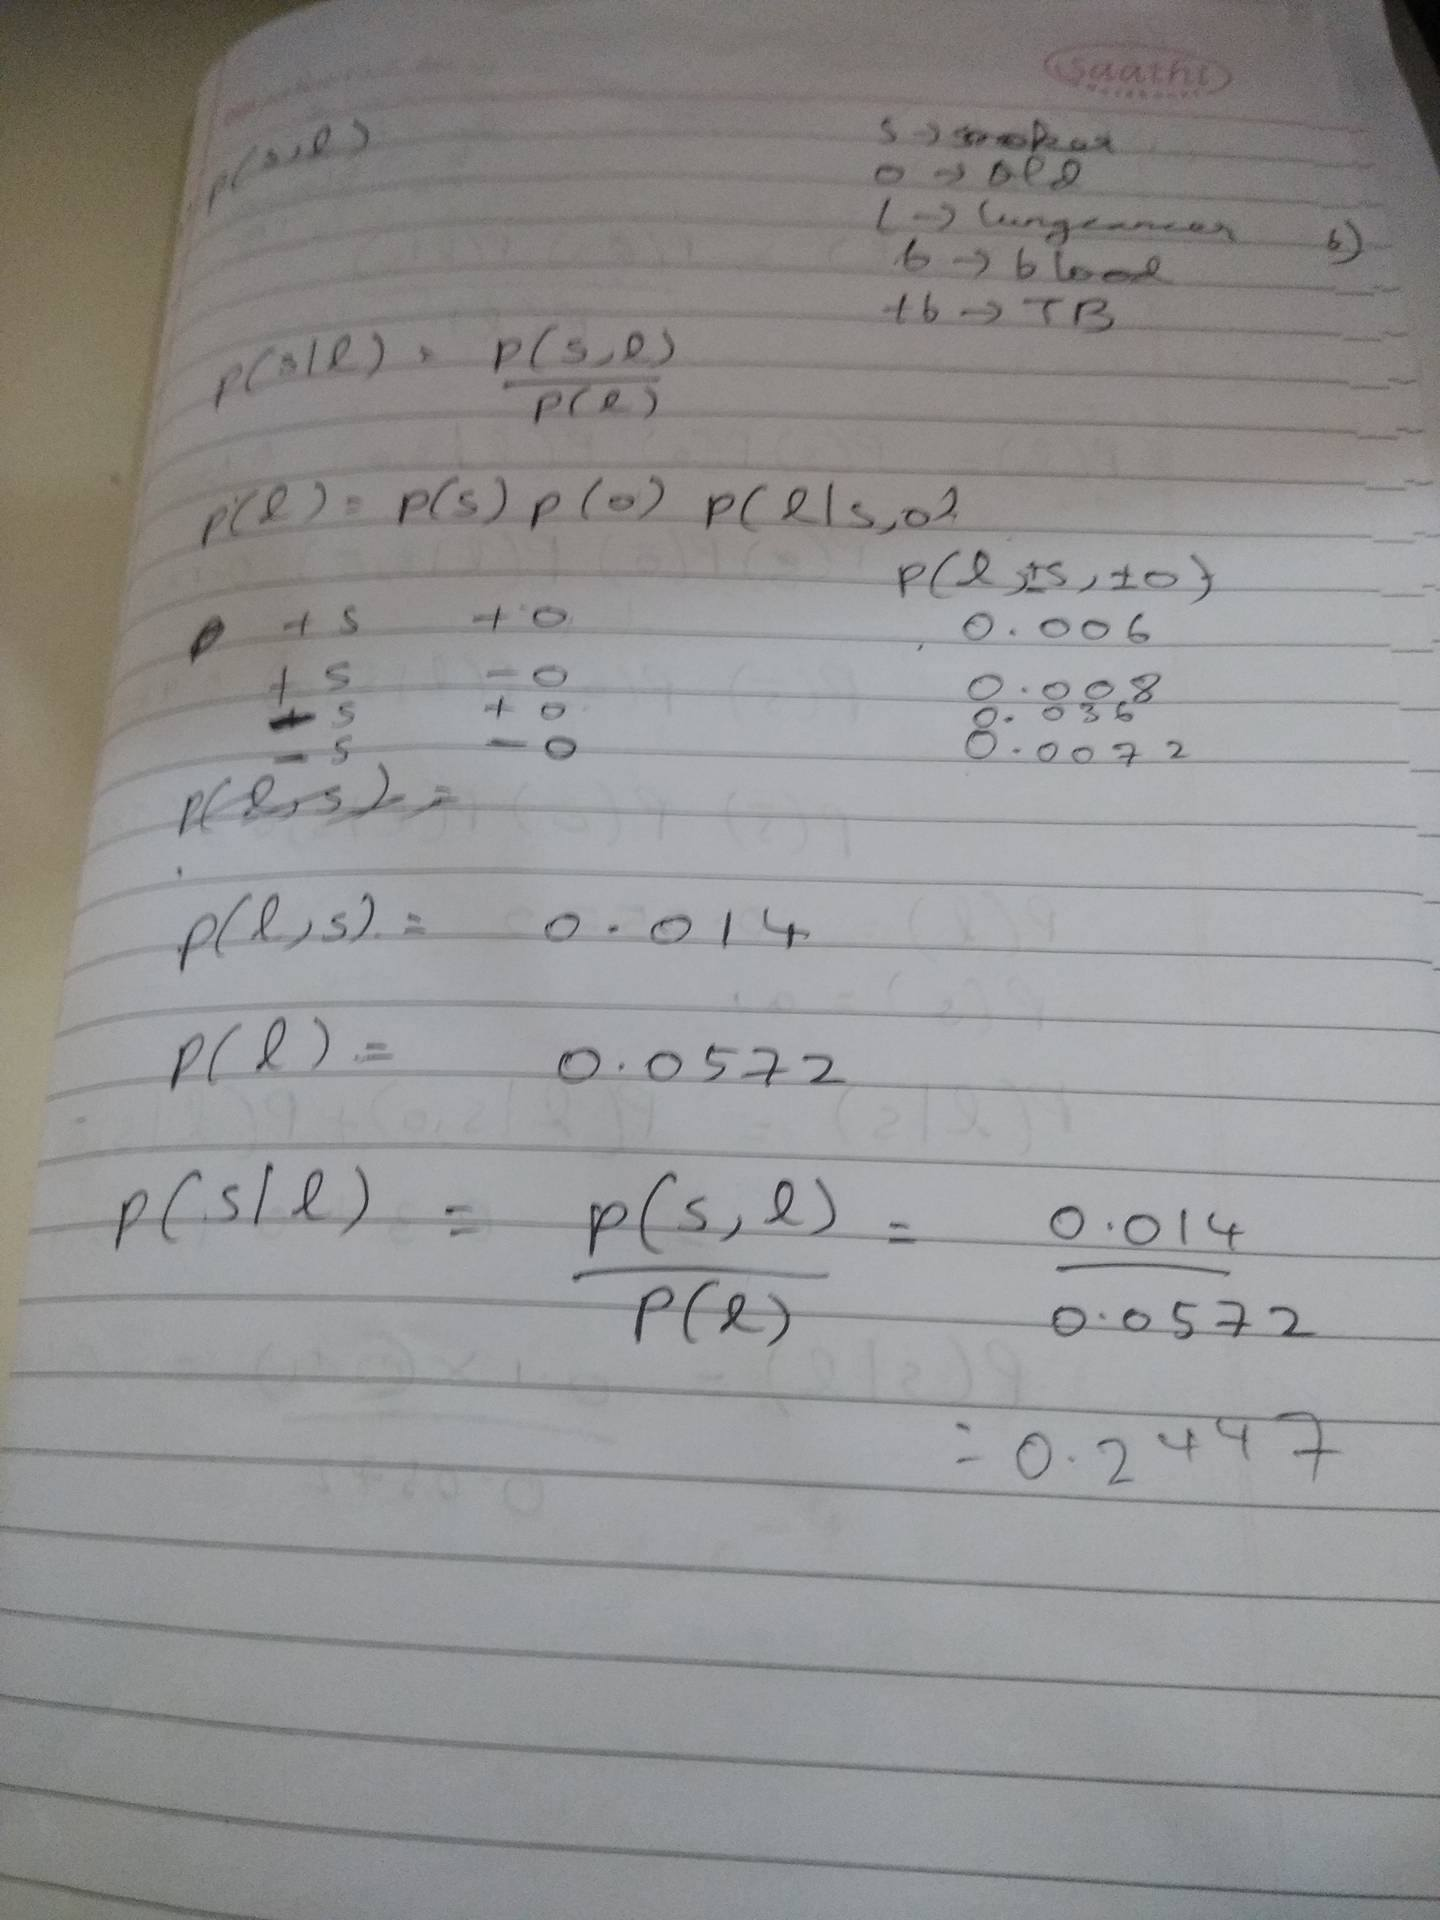 Saathi
p(s,l)
s → smoker
o → old
l → lungcancer
b)
b → blood
tb → TB
p(s|l) = p(s,l)
p(l)
p(l) = p(s) p(o) p(l|s,o)
p(l,±s,±o)
+s +o 0.006
+s -o 0.008
-s +o 0.036
-s -o 0.0072
p(l,s) =
p(l,s) = 0.014
p(l) = 0.0572
p(s|l) = p(s,l) = 0.014
p(l) 0.0572
= 0.2447